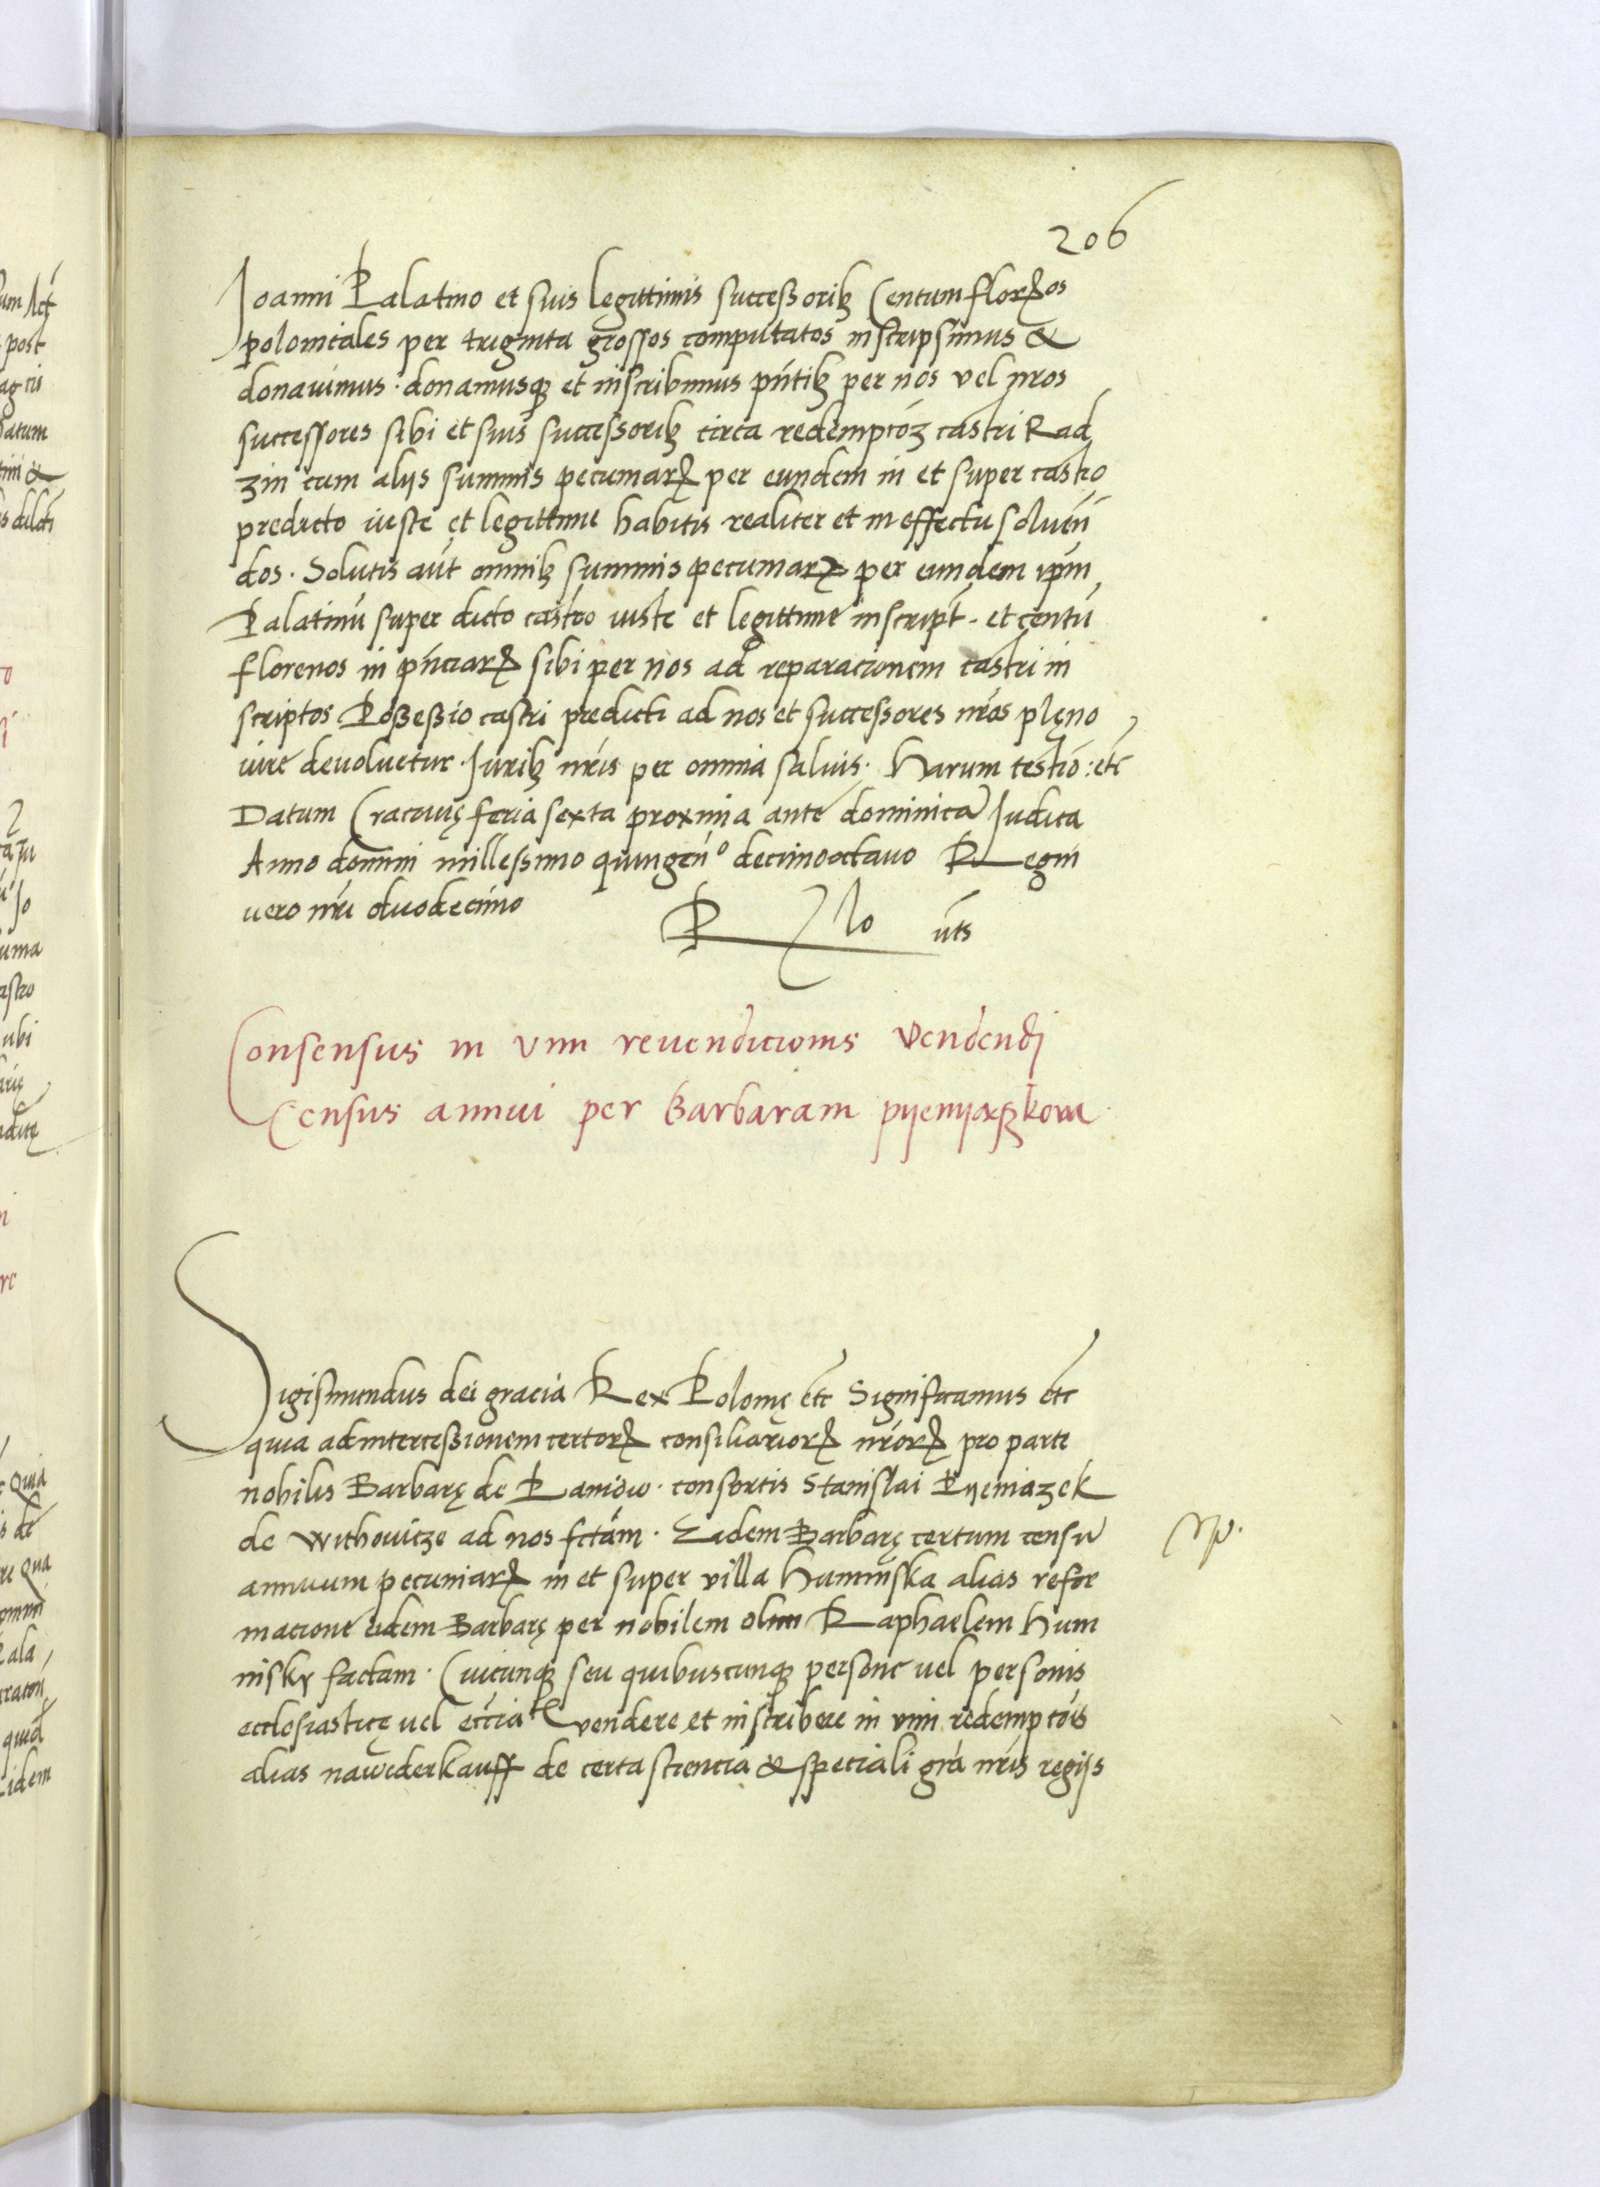 206
Joanni Palatino et suis legittimis successorib⁊ Centum florꝝos
polonicales per triginta grossos computatos inscripsimus &
donauimus · donamusq⁊ et inscribimus pn̄tib⁊ per nos vel nros
successores sibi et suis successorib⁊ circa redempcōȝ castri Rad
zin cum alijs summis pecuniarꝝ per eundem in et super castro
predicto iuste et legittime habitis realiter et in effectu soluen̄
dos · Solutis aūt omnib⁊ summis pecuniarꝝ per eundem ip̄m
Palatinū super dicto castro iuste et legittime inscript̄ · et centū
florenos in pn̄ciarꝝ sibi per nos ad reparacionem castri in
scriptos Possessio castri predicti ad nos et successores nr̄os plęno
iure deuoluetur · Jurib⁊ nr̄is per omnia saluis · Harum testio: etc
Datum Cracouię feria sexta proxima ante dominicā Judica
Anno domini millessimo quingen̄º decimooctauo Regni
uero nr̄i duodecimo
uts
Consensus in vim reuendicionis Vendendi
Census annui per Barbaram pyenyąszkowa
Sigismundus dei gracia Rex Polonię etc Significamus etc
quia ad intercessionem certorꝝ consiliariorꝝ nr̄orꝝ pro parte
nobilis Barbarę de Paniow · consortis Stanislai Pyeniazek
de Withowicze ad nos fctām · Eidem Barbarę certum censū
annuum pecuniarꝝ in et super villa Huminska alias refor
macione eidem Barbarę per nobilem olim Raphaelem Hum
nisky factam · Cuicunq⁊ seu quibuscunq⁊ persone vel personis
ecclesiasticę vel ecc̄iatꝭ vendere et inscribere in vim redempcōis
alias nawiderkauff de certa sciencia & speciali gr̄a nr̄is regijs